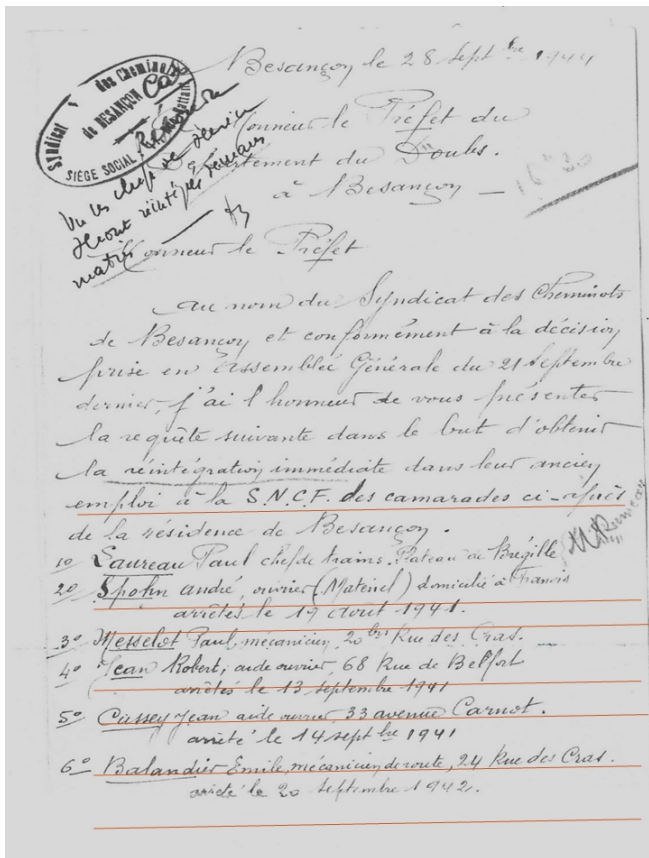 Besançon le 28 Septbre 1944
Syndicat des Cheminots
de BESANÇON
SIÈGE SOCIAL
Monsieur le Préfet du
Département du Doubs.
à Besançon —
Vu les chefs de service
seront réintégrés
Monsieur le Préfet
au nom du Syndicat des Cheminots
de Besançon et conformément à la décision
prise en Assemblée Générale du 21 Septembre
dernier, j'ai l'honneur de vous présenter
la requête suivante dans le but d'obtenir
la réintégration immédiate dans leur ancien
emploi à la S.N.C.F. des camarades ci-après
de la résidence de Besançon.
1º Laureau Paul chef de trains. Plateau de Brégille
2º Spohn andré, ouvrier (Matériel) domicilié à Franois
arrêtés le 19 aout 1941.
3º Messelot Paul, mécanicien, 20 bis Rue des Cras.
4º Jean Robert, aide ouvrier, 68 Rue de Belfort
arrêtés le 13 septembre 1941
5º Cassey Jean aide ouvrier, 33 avenue Carnot.
arrêté le 14 septbre 1941
6º Balandier Emile, mécanicien de route, 24 Rue des Cras.
arrêté le 20 septembre 1942.